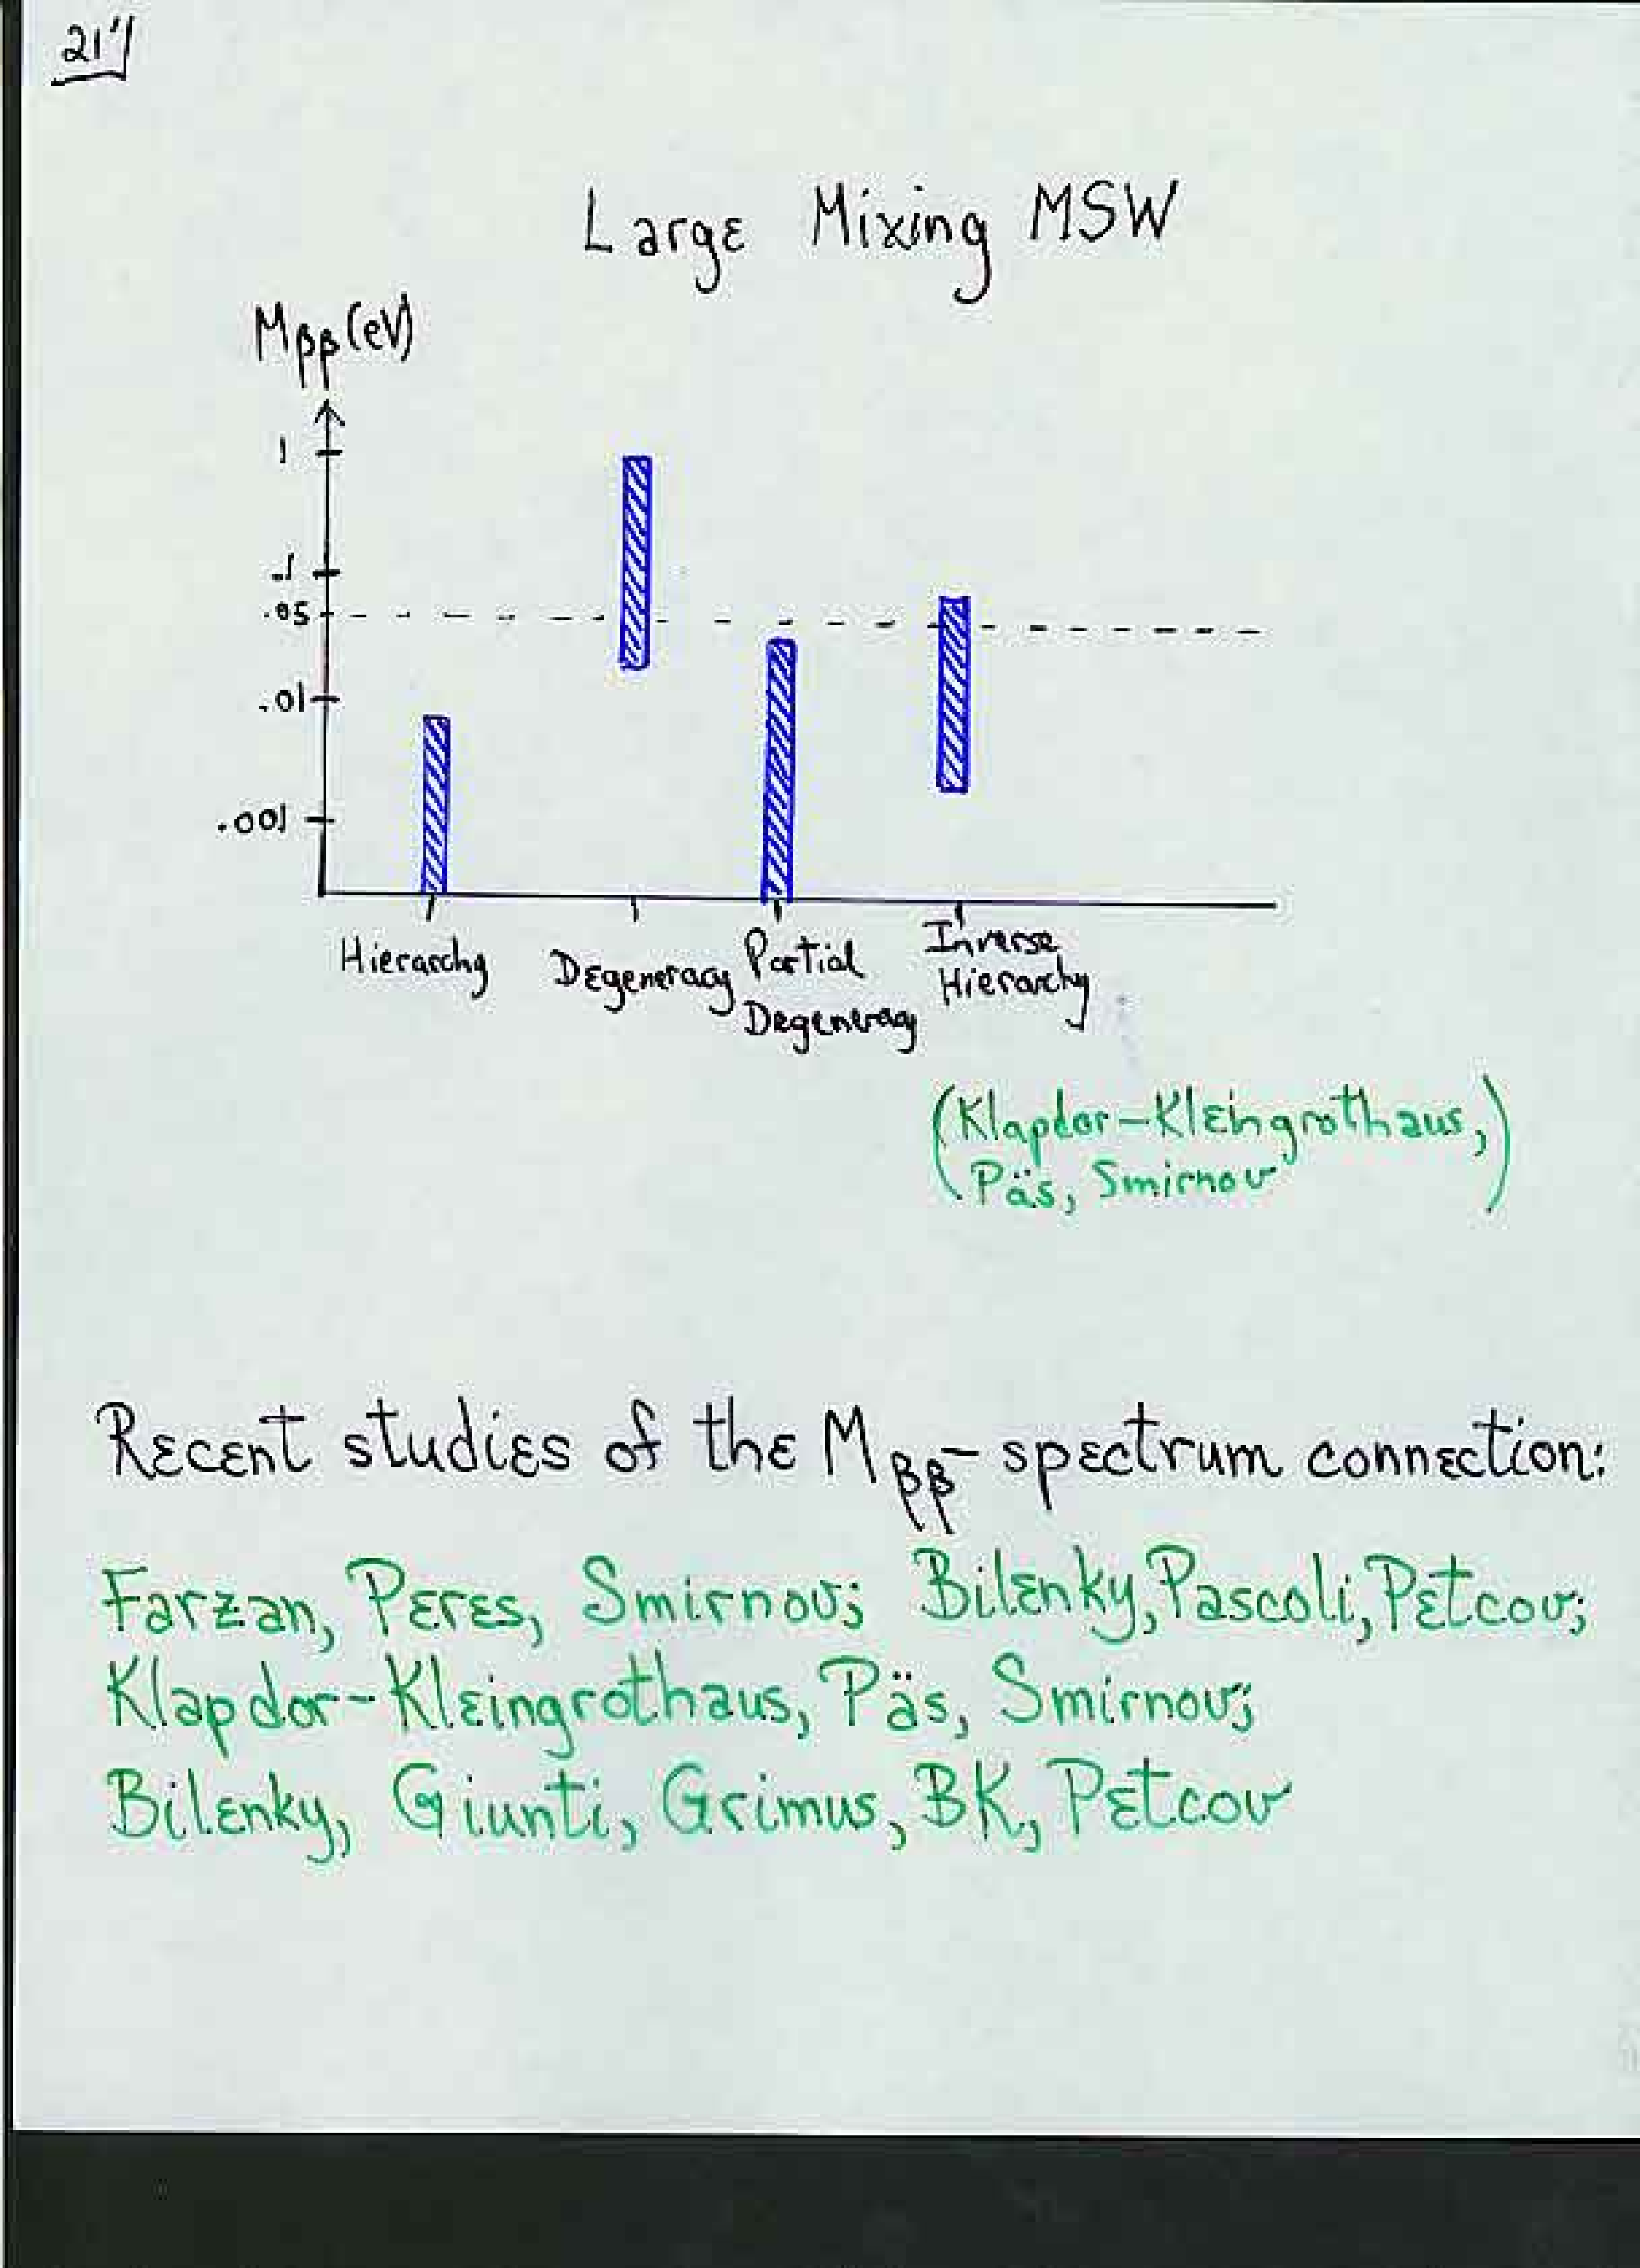 21"
Large Mixing MSW
Mββ(eV)
1
.1
.05
.01
.001
Hierarchy
Degeneracy
Partial
Degeneracy
Inverse
Hierarchy
(Klapdor-Kleingrothaus,
Päs, Smirnov)
Recent studies of the Mββ-spectrum connection:
Farzan, Peres, Smirnov; Bilenky, Pascoli, Petcov;
Klapdor-Kleingrothaus, Päs, Smirnov;
Bilenky, Giunti, Grimus, BK, Petcov